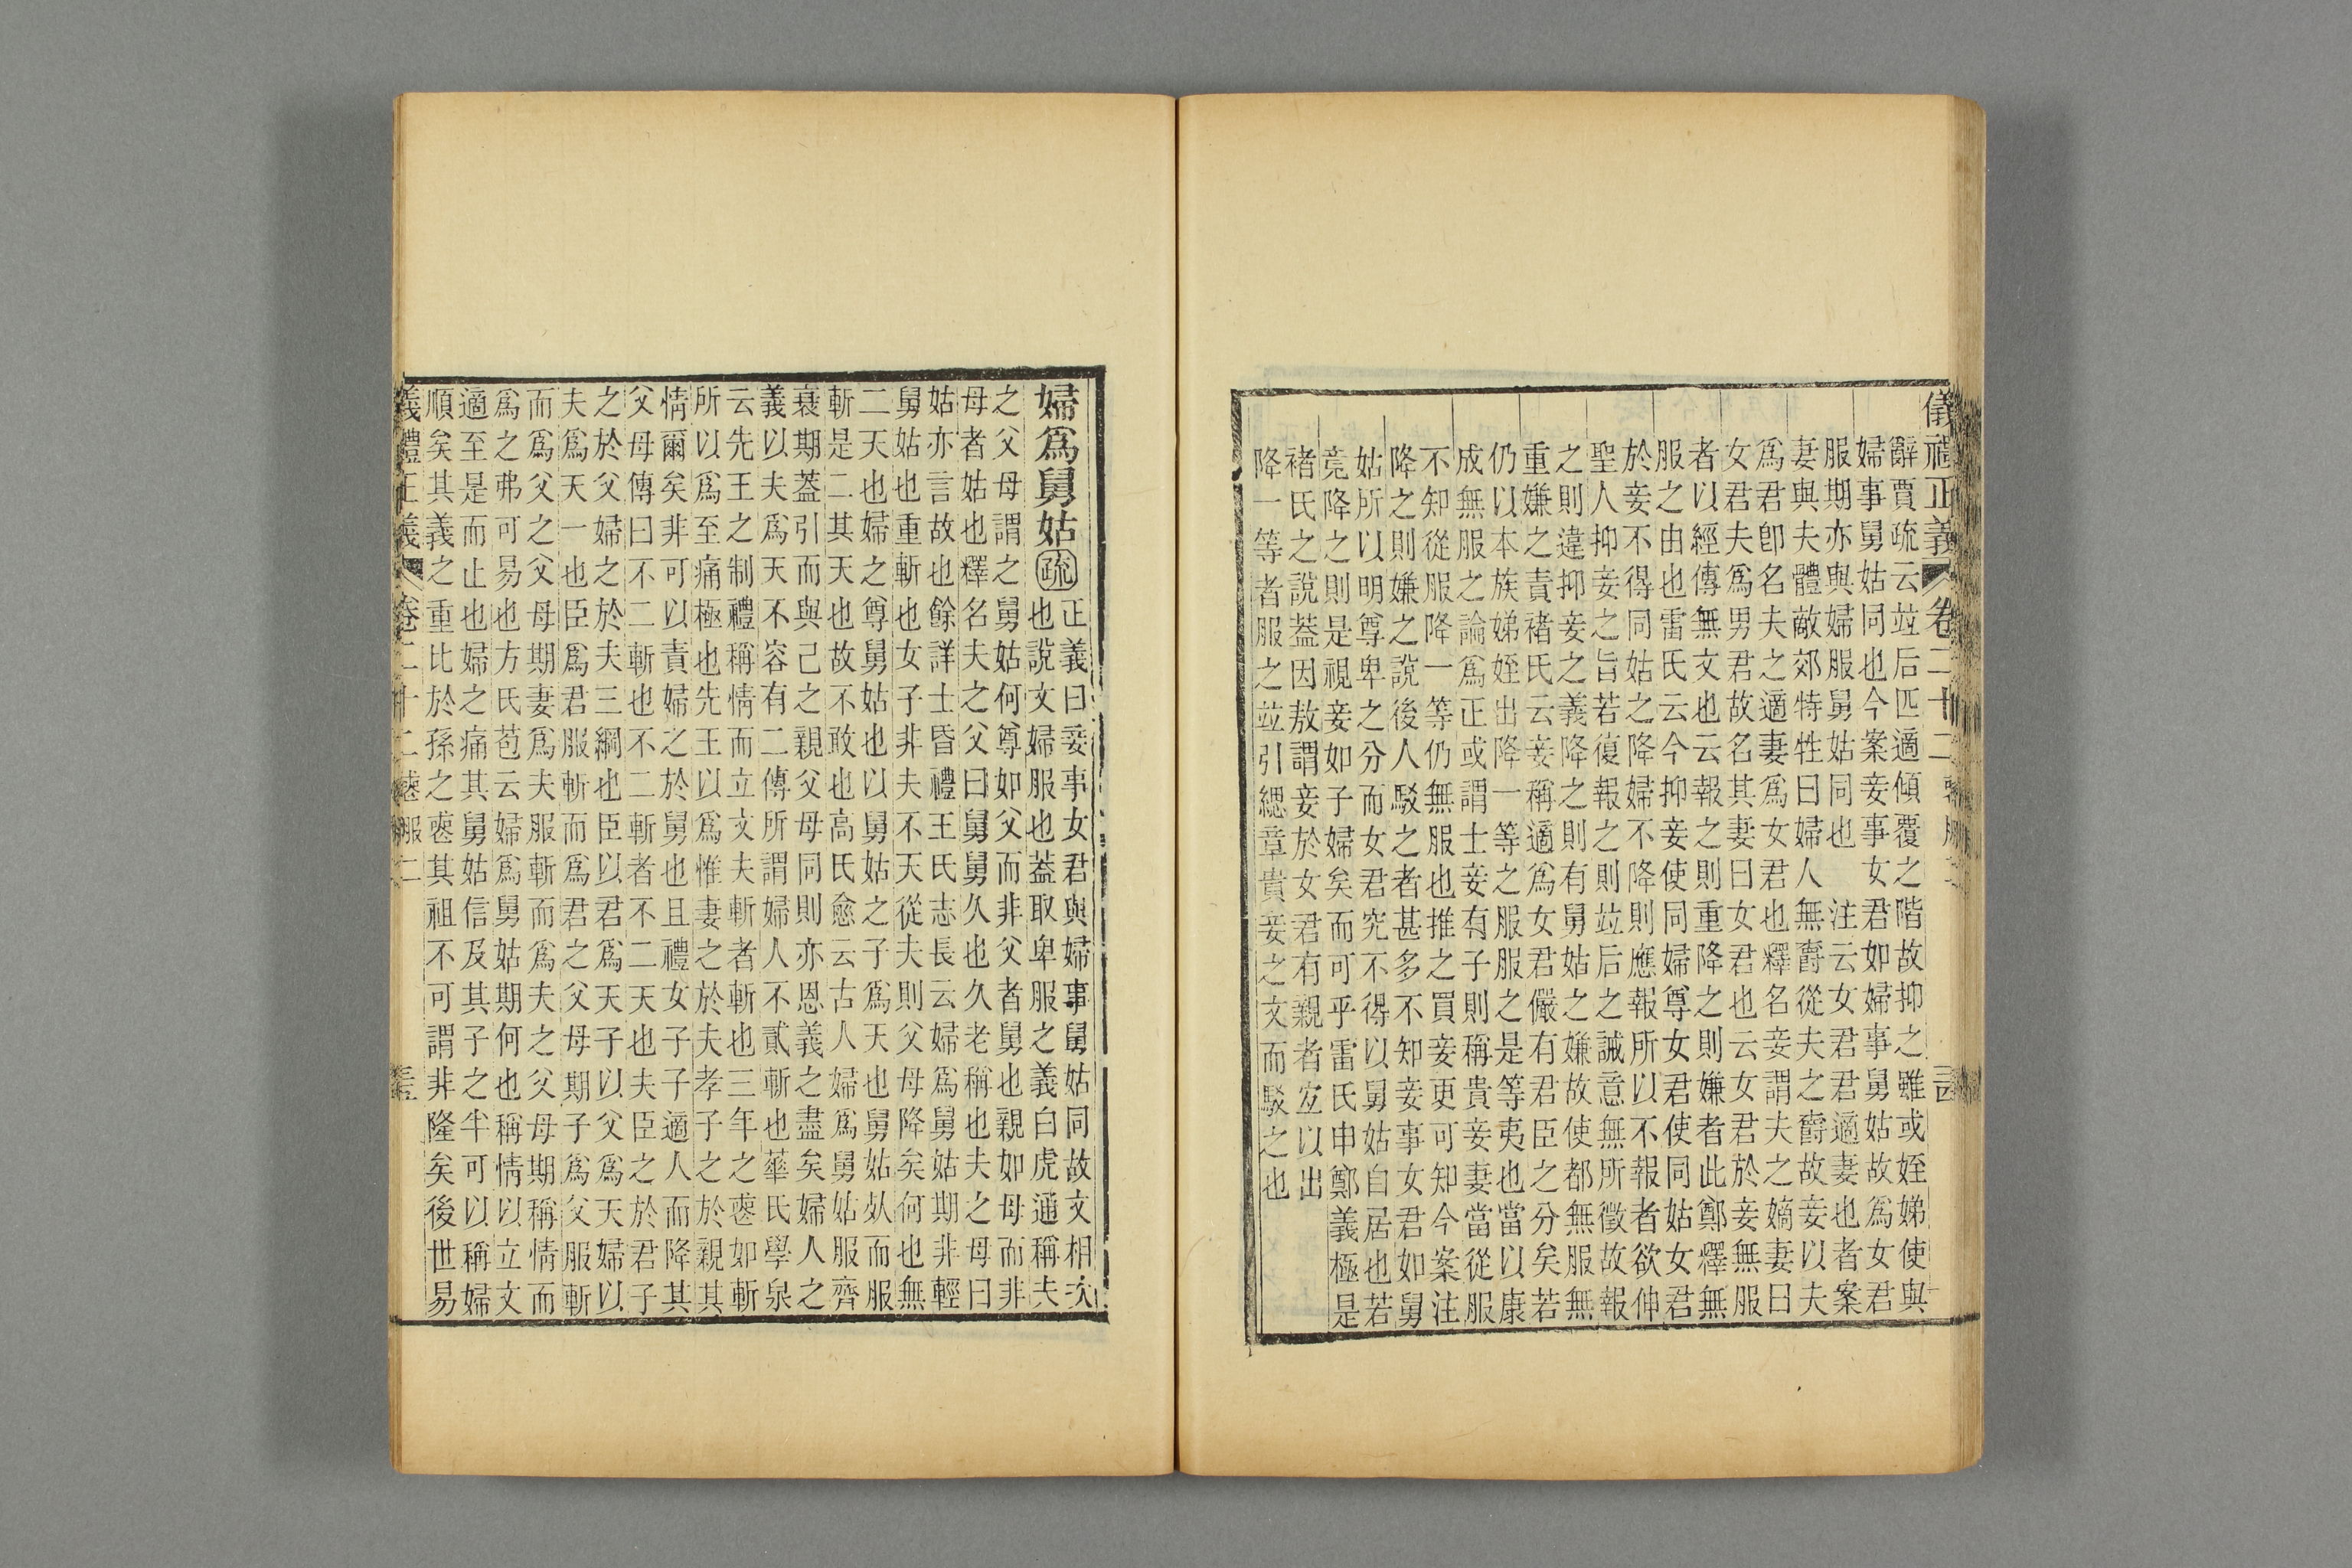 儀禮正義 卷二十二 喪服二 三四
辭賈疏云竝后匹適傾覆之階故抑之雖或姪娣使與
婦事舅姑同也今案妾事女君如婦事舅姑故爲女君
服期亦與婦服舅姑同也 注云女君君適妻也者案
妻與夫體敵郊特牲曰婦人無爵從夫之爵故妾以夫
爲君卽名夫之適妻爲女君也釋名妾謂夫之嫡妻曰
女君夫爲男君故名其妻曰女君也云女君於妾無服
者以經傳無文也云報之則重降之則嫌者此鄭釋無
服之由也雷氏云今抑妾使同婦尊女君使同姑女君
於妾不得同姑之降婦不降則應報所以不報者欲伸
聖人抑妾之旨若復報之則竝后之誡意無所徵故報
之則違抑妾之義降之則有舅姑之嫌故使都無服無
重嫌之責褚氏云妾稱適爲女君儼有君臣之分矣若
仍以本族娣姪出降一等之服服之是等夷也當以康
成無服之論爲正或謂士妾有子則稱貴妾妻當從服
不知從服降一等仍無服也推之買妾更可知今案注
降之則嫌之說後人駁之者甚多不知妾事女君如舅
姑所以明尊卑之分而女君究不得以舅姑自居也若
竟降之則是視妾如子婦矣而可乎雷氏申鄭義極是
褚氏之說蓋因敖謂妾於女君有親者宜以出
降一等者服之竝引緦章貴妾之文而駁之也
婦爲舅姑疏
正義曰妾事女君與婦事舅姑同故文相次
也說文婦服也蓋取卑服之義白虎通稱夫
之父母謂之舅姑何尊如父而非父者舅也親如母而非
母者姑也釋名夫之父曰舅舅久也久老稱也夫之母曰
姑亦言故也餘詳士昏禮王氏志長云婦爲舅姑期非輕
舅姑也重斬也女子非夫不天從夫則父母降矣何也無
二天也婦之尊舅姑也以舅姑之子爲天也舅姑而服
斬是二其天也故不敢也高氏愈云古人婦爲舅姑服齊
衰期蓋引而與己之親父母同則亦恩義之盡矣婦人之
義以夫爲天不容有二傳所謂婦人不貳斬也華氏學泉
云先王之制禮稱情而立文夫斬者斬也三年之喪如斬
所以爲至痛極也先王以爲惟妻之於夫孝子之於親其
情爾矣非可以責婦之於舅也且禮女子子適人而降其
父母傳曰不二斬也不二斬者不二天也夫臣之於君子
之於父婦之於夫三綱也臣以君爲天子以父爲天婦以
夫爲天一也臣爲君服斬而爲君之父母期子爲父服斬
而爲父之父母期妻爲夫服斬而爲夫之父母期稱情而
爲之弗可易也方氏苞云婦爲舅姑期何也稱情以立文
適至是而止也婦之痛其舅姑信及其子之半可以稱婦
順矣其義之重比於孫之喪其祖不可謂非隆矣後世易
儀禮正義 卷二十二 喪服二 三五